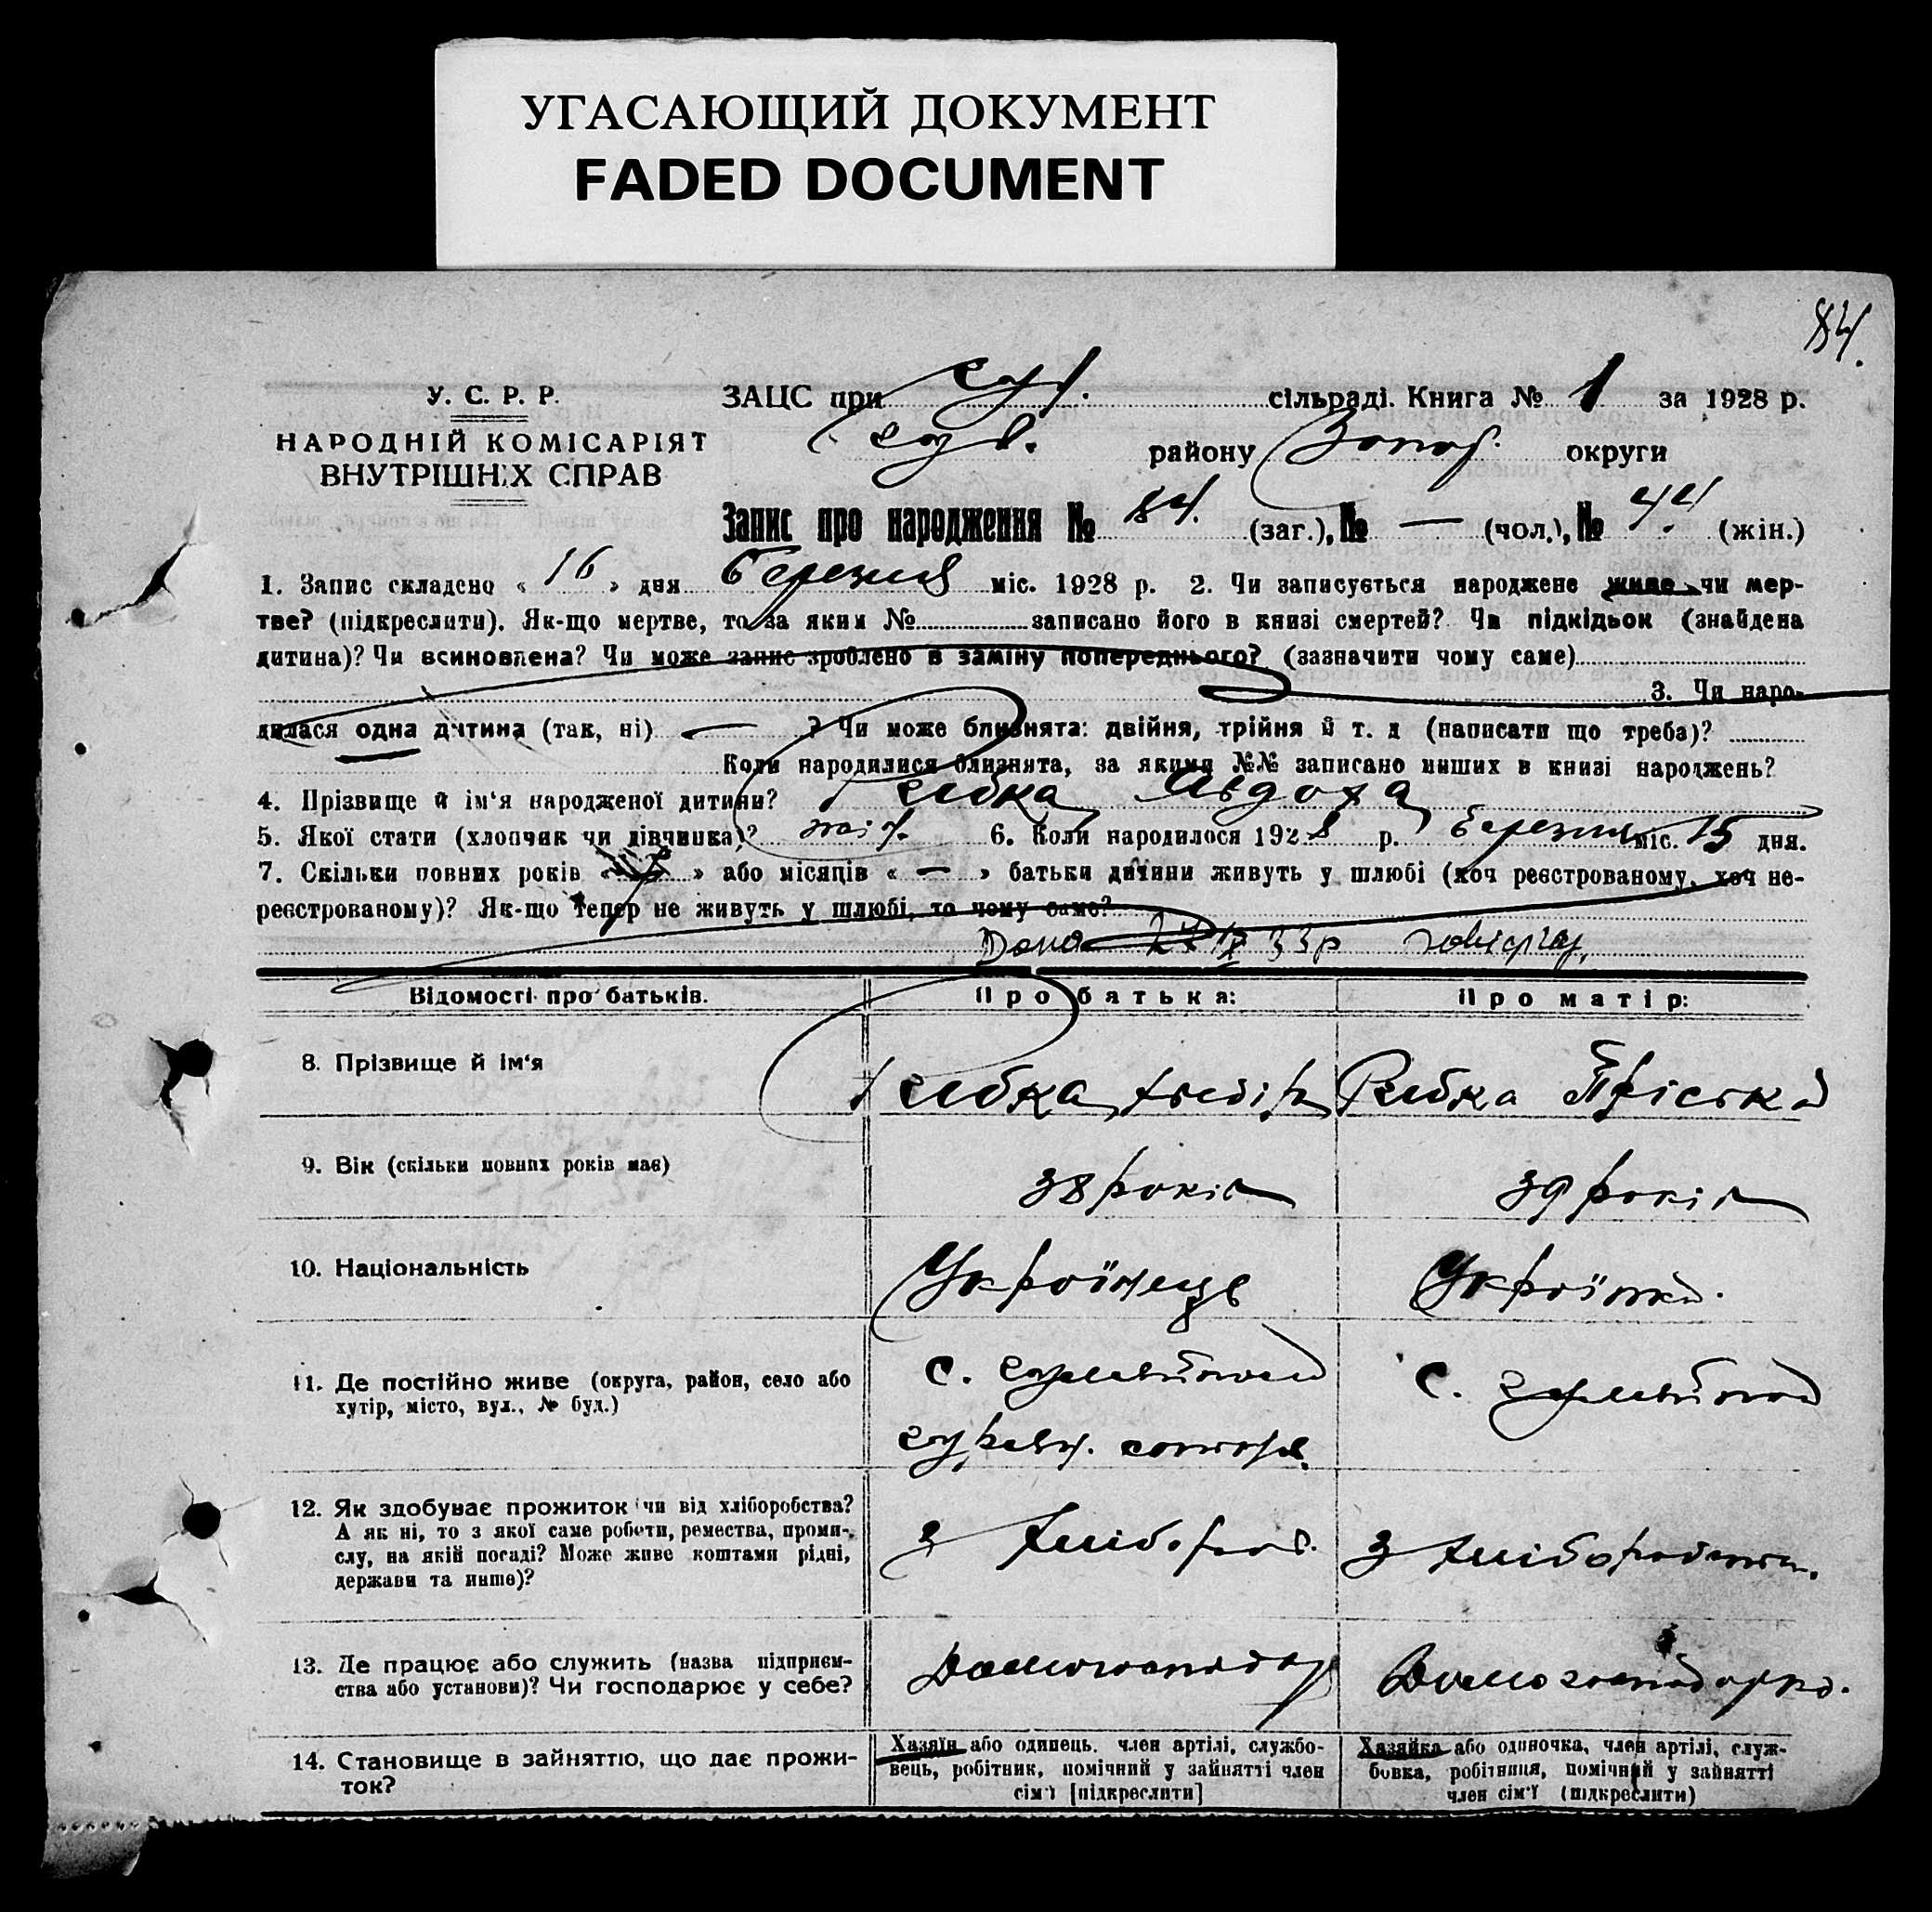 УГАСАЮЩИЙ ДОКУМЕНТ
FADED DOCUMENT
84.
У. С. Р. Р.
НАРОДНІЙ КОМІСАРІЯТ
ВНУТРІШНІХ СПРАВ
ЗАЦС при сільраді. Книга № 1 за 1928 р.
району Запор. округи
Запис про народження № 84. (заг.), № — (чол.), № 44 (жін.)
1. Запис складено « 16 » дня березня міс. 1928 р. 2. Чи записується народжене живе чи мер-
тве? (підкреслити). Як-що мертве, то за яким № записано його в книзі смертей? Чи підкідьок (знайдена
дитина)? Чи всиновлена? Чи може запис зроблено в заміну попереднього? (зазначити чому саме)
3. Чи наро-
дилася одна дитина (так, ні) — ? Чи може близнята: двійня, трійня й т. д (написати що треба)?
Коли народилися близнята, за якими №№ записано инших в книзі народжень?
4. Прізвище й ім'я народженої дитини? Рибка Явдоха
5. Якої стати (хлопчик чи дівчинка)? жін. 6. Коли народилося 1928 р. березня міс. 15 дня.
7. Скільки повних років « » або місяців « — » батьки дитини живуть у шлюбі (хоч реєстрованому, хоч не-
реєстрованому)? Як-що тепер не живуть у шлюбі, то чому саме?
33р
Відомості про батьків.
Про батька:
Про матір:
8. Прізвище й ім'я
Рибка
Рибка Пріська
9. Вік (скільки повних років має)
38 років
39 років
10. Національність
Українець
Українка.
11. Де постійно живе (округа, район, село або
хутір, місто, вул., № буд.)
с.
с.
12. Як здобуває прожиток чи від хліборобства?
А як ні, то з якої саме роботи, ремества, проми-
слу, на якій посаді? Може живе коштами рідні,
держави та инше)?
з хлібороб.
з хліборобства.
13. Де працює або служить (назва підприєм-
ства або установи)? Чи господарює у себе?
Домогосподар
Домогосподарка.
14. Становище в зайняттю, що дає прожи-
ток?
Хазяїн або одинець, член артілі, службо-
вець, робітник, помічний у зайнятті член
сім'ї [підкреслити]
Хазяйка або одиночка, член артілі, служ-
бовка, робітниця, помічний у зайнятті
член сім'ї (підкреслити)